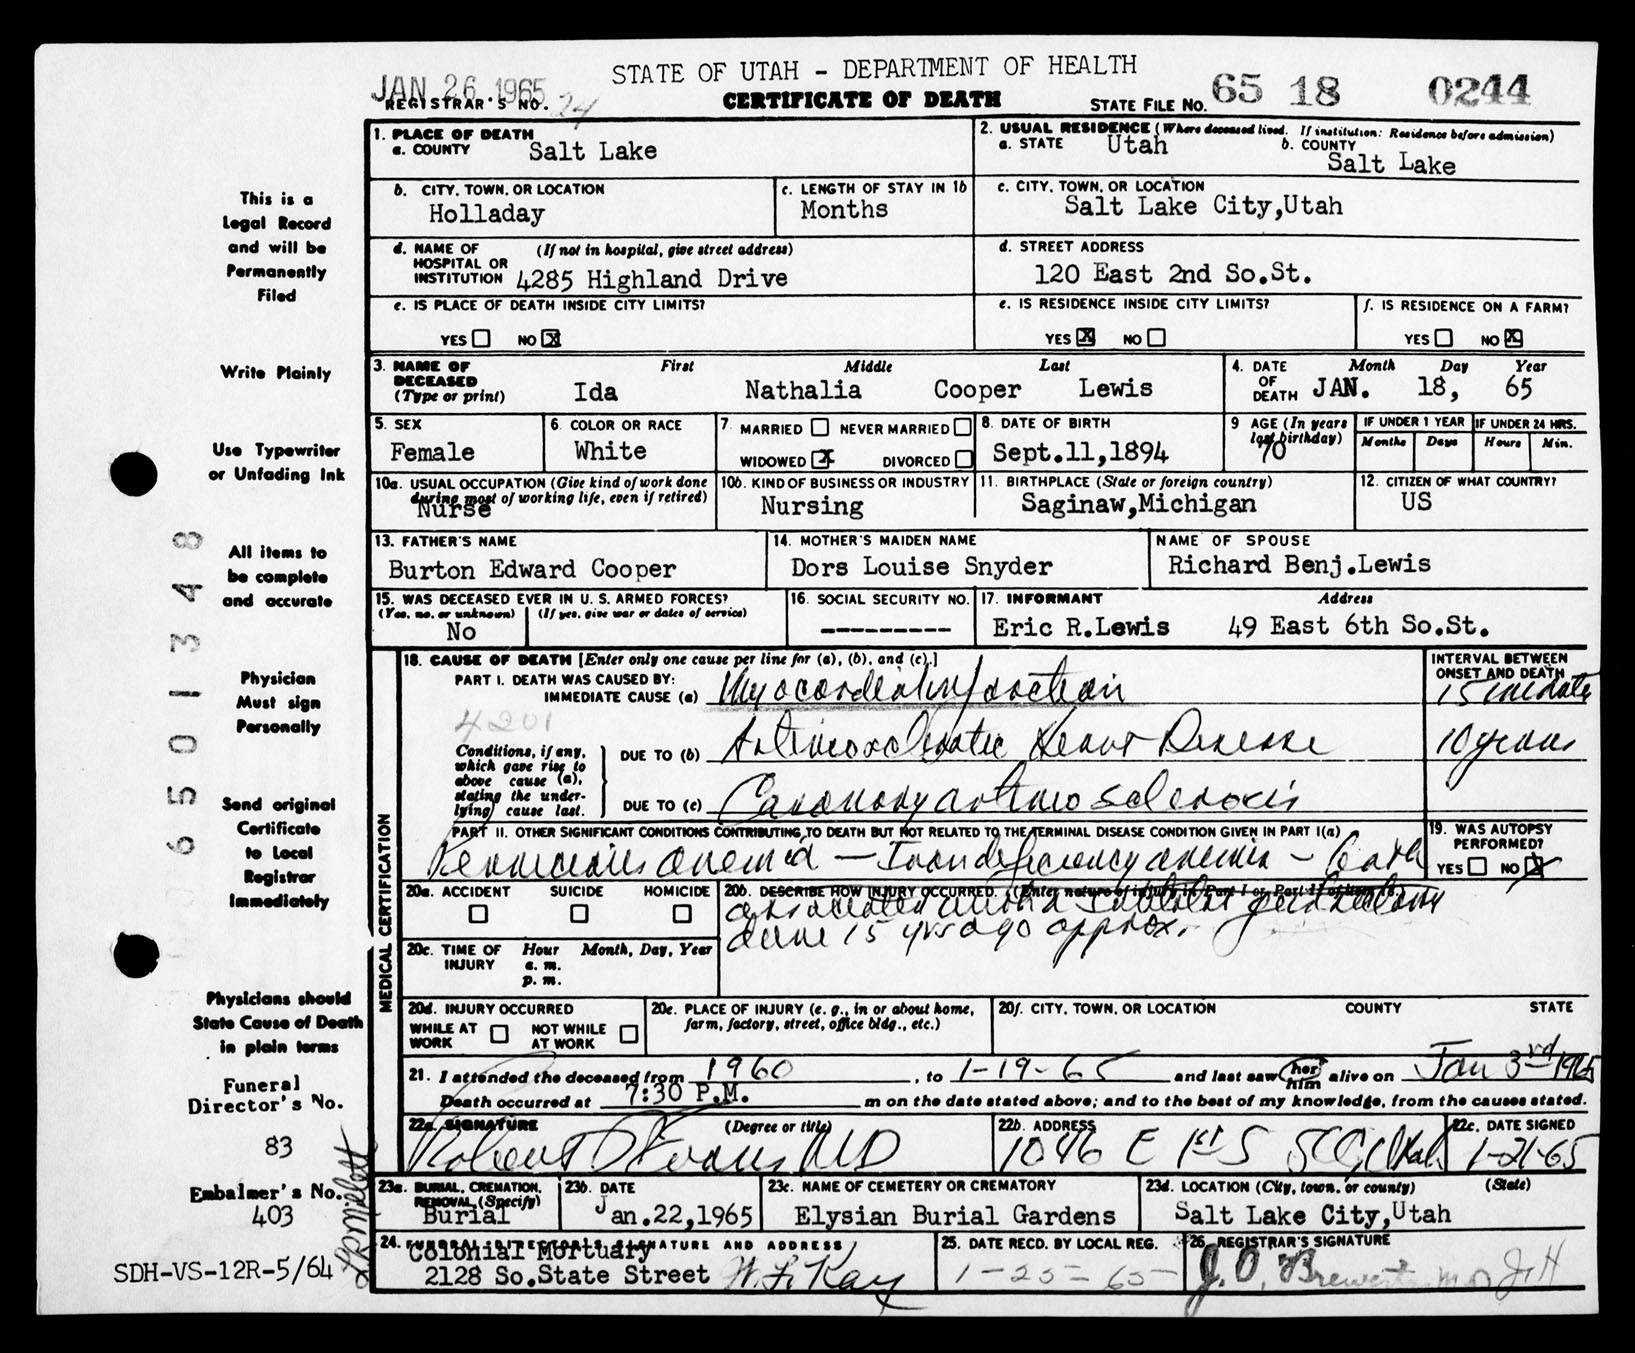 STATE OF UTAH - DEPARTMENT OF HEALTH
JAN 26.1965
REGISTRAR'S NO. 24
CERTIFICATE OF DEATH
STATE FILE NO. 65 18 0244
1. PLACE OF DEATH
a. COUNTY Salt Lake
2. USUAL RESIDENCE (Where deceased lived. If institution: Residence before admission)
a. STATE Utah b. COUNTY Salt Lake
b. CITY, TOWN, OR LOCATION Holladay
c. LENGTH OF STAY IN 1b Months
c. CITY, TOWN, OR LOCATION Salt Lake City,Utah
d. NAME OF HOSPITAL OR INSTITUTION (If not in hospital, give street address) 4285 Highland Drive
d. STREET ADDRESS 120 East 2nd So.St.
e. IS PLACE OF DEATH INSIDE CITY LIMITS?
YES NO X
e. IS RESIDENCE INSIDE CITY LIMITS?
YES X NO
f. IS RESIDENCE ON A FARM?
YES NO X
3. NAME OF DECEASED (Type or print) First Middle Last
Ida Nathalia Cooper Lewis
4. DATE OF DEATH Month Day Year
JAN. 18, 65
5. SEX Female
6. COLOR OR RACE White
7. MARRIED NEVER MARRIED
WIDOWED X DIVORCED
8. DATE OF BIRTH Sept.11,1894
9 AGE (In years last birthday) 70
IF UNDER 1 YEAR Months Days
IF UNDER 24 HRS. Hours Min.
10a. USUAL OCCUPATION (Give kind of work done during most of working life, even if retired) Nurse
10b. KIND OF BUSINESS OR INDUSTRY Nursing
11. BIRTHPLACE (State or foreign country) Saginaw,Michigan
12. CITIZEN OF WHAT COUNTRY? US
13. FATHER'S NAME Burton Edward Cooper
14. MOTHER'S MAIDEN NAME Dors Louise Snyder
NAME OF SPOUSE Richard Benj.Lewis
15. WAS DECEASED EVER IN U. S. ARMED FORCES?
(Yes, no, or unknown) (If yes, give war or dates of service)
No
16. SOCIAL SECURITY NO. ---------
17. INFORMANT Address
Eric R.Lewis 49 East 6th So.St.
MEDICAL CERTIFICATION
18. CAUSE OF DEATH [Enter only one cause per line for (a), (b), and (c).]
INTERVAL BETWEEN ONSET AND DEATH
PART I. DEATH WAS CAUSED BY:
IMMEDIATE CAUSE (a) Myocardial infarction 15 minutes
4201
Conditions, if any, which gave rise to above cause (a), stating the underlying cause last.
DUE TO (b) Arteriosclerotic Heart Disease 10 years
DUE TO (c) Coronary arteriosclerosis
PART II. OTHER SIGNIFICANT CONDITIONS CONTRIBUTING TO DEATH BUT NOT RELATED TO THE TERMINAL DISEASE CONDITION GIVEN IN PART I(a)
Pernicious anemia - Iron deficiency anemia - both
associated with a
done 15 yrs ago approx.
19. WAS AUTOPSY PERFORMED?
YES NO X
20a. ACCIDENT SUICIDE HOMICIDE
20b. DESCRIBE HOW INJURY OCCURRED. (Enter nature of injury in Part I or Part II of item 18.)
20c. TIME OF INJURY Hour Month, Day, Year
a. m.
p. m.
20d. INJURY OCCURRED
WHILE AT WORK NOT WHILE AT WORK
20e. PLACE OF INJURY (e. g., in or about home, farm, factory, street, office bldg., etc.)
20f. CITY, TOWN, OR LOCATION COUNTY STATE
21. I attended the deceased from 1960, to 1-19-65 and last saw her him alive on Jan 3rd 1965
Death occurred at 7:30 P.M. m on the date stated above; and to the best of my knowledge, from the causes stated.
22a. SIGNATURE (Degree or title) Robert Evans MD
22b. ADDRESS 1046 E 1st S SLC, Utah
22c. DATE SIGNED 1-21-65
23a. BURIAL, CREMATION, REMOVAL, (Specify) Burial
23b. DATE Jan.22,1965
23c. NAME OF CEMETERY OR CREMATORY Elysian Burial Gardens
23d. LOCATION (City, town, or county) (State) Salt Lake City,Utah
24. FUNERAL DIRECTOR'S SIGNATURE AND ADDRESS
Colonial Mortuary
2128 So.State Street
25. DATE RECD. BY LOCAL REG. 1-25-65
26. REGISTRAR'S SIGNATURE
J. O. Brewerton MD
This is a
Legal Record
and will be
Permanently
Filed
Write Plainly
Use Typewriter
or Unfading Ink
All items to
be complete
and accurate
Physician
Must sign
Personally
Send original
Certificate
to Local
Registrar
Immediately
Physicians should
State Cause of Death
in plain terms
Funeral
Director's No.
83
Embalmer's No.
403
SDH-VS-12R-5/64
06501348